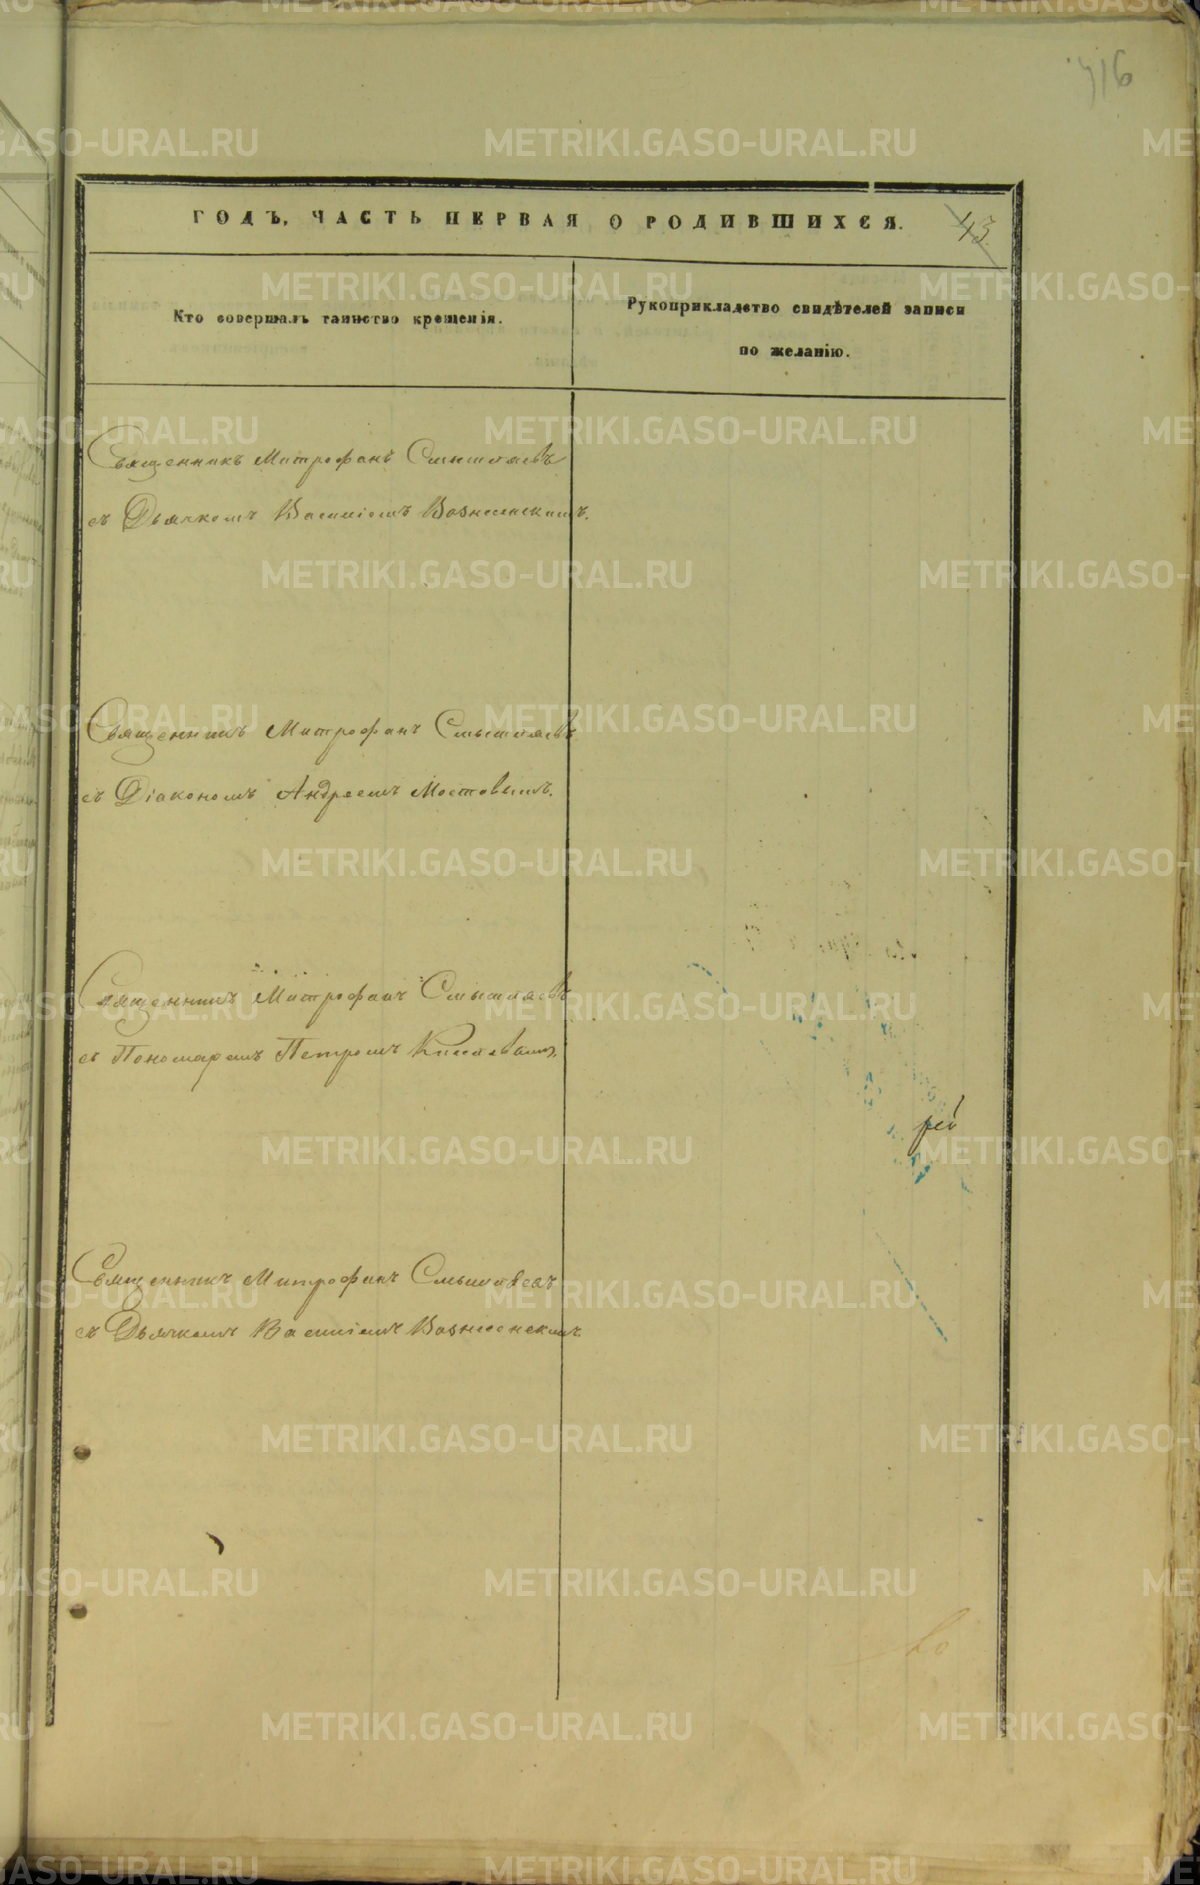 316
ГОДЪ, ЧАСТЬ ПЕРВАЯ О РОДИВШИХСЯ.
43
Кто совершалъ таинство крещенія.
Рукоприкладство свидѣтелей записи
по желанію.
Священникъ Митрофанъ Смышляевъ
съ Дьячкомъ Василіемъ Вознесенскимъ.
Священникъ Митрофанъ Смышляевъ
съ Діакономъ Андреемъ Мостовымъ.
Священникъ Митрофанъ Смышляевъ
съ Пономаремъ Петромъ
Священникъ Митрофанъ Смышляевъ
съ Дьячкомъ Василіемъ Вознесенскимъ
METRIKI.GASO-URAL.RU